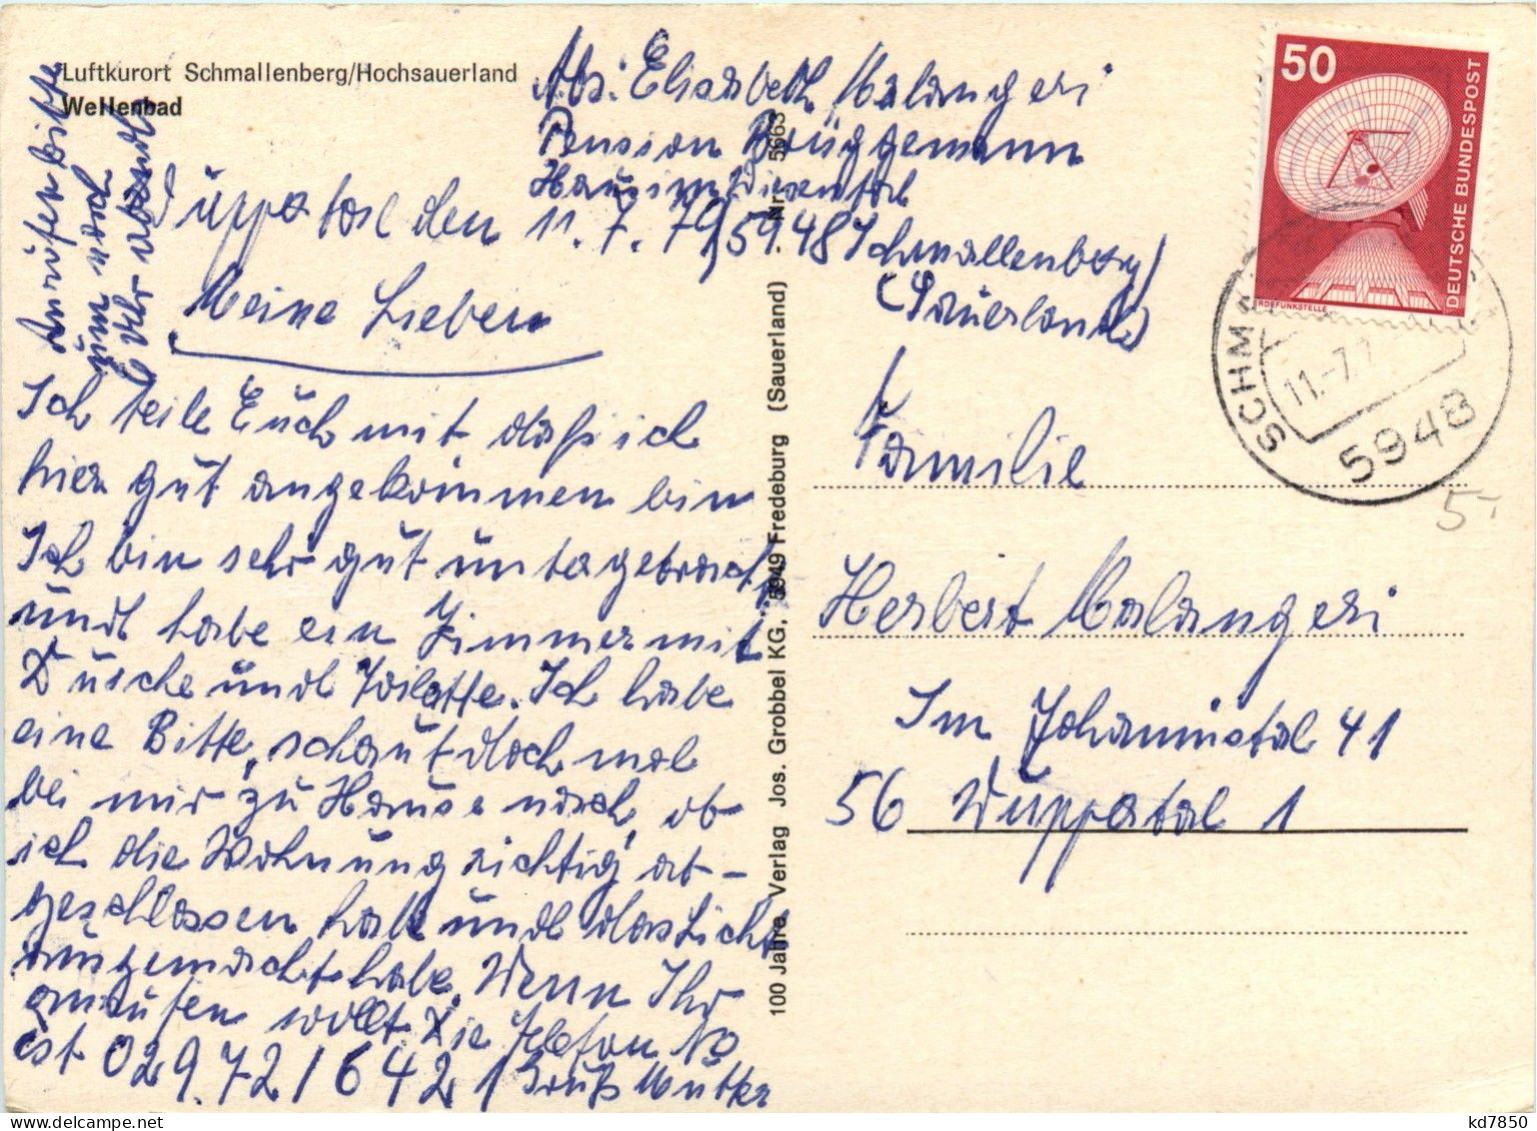 Luftkurort Schmallenberg/Hochsauerland
Wellenbad
Abs: Elisabeth Malangeri
Pension Brüggemann
Haus im Wiesental
5948 Schmallenberg/
(Sauerland)
Wuppatal den 11.7.79
Meine Lieben
Ich teile Euch mit daß ich
hier gut angekommen bin
Ich bin sehr gut untagebracht
und habe ein Zimmer mit
Dusche und Toilette. Ich habe
eine Bitte, schaut doch mal
bei mir zu Hause nach, ob
ich die Wohnung richtig ab-
geschlossen hab und das Licht
ausgemacht habe. Wenn Ihr
anrufen wollt Die Telefon No
ist 02972/642 Gruß Mutter
Anrufen bitte
um nach
6 Uhr abends
100 Jahre Verlag Jos. Grobbel KG, 5949 Fredeburg (Sauerland) Nr. 5663
50
DEUTSCHE BUNDESPOST
ERDEFUNKSTELLE
SCHMA
11.-7.7
5948
5,-
Familie
Herbert Malangeri
Im Johannistal 41
56 Wuppatal 1
kd7850